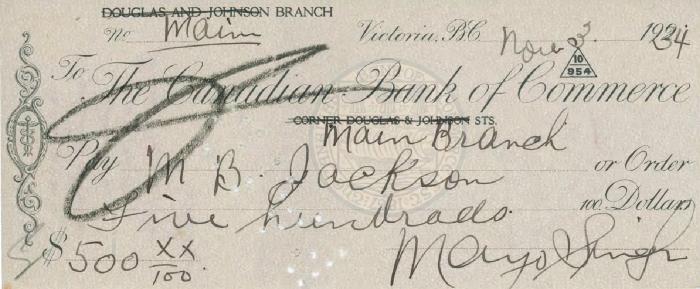 DOUGLAS AND JOHNSON BRANCH
No Main Victoria, B.C. Nov 23 1934
10
954
To The Canadian Bank of Commerce
CORNER DOUGLAS & JOHNSON STS.
Main Branch
Pay M B. Jackson or Order
Five hundrads. 100 Dollars
$500 XX/100. Mayo Singh